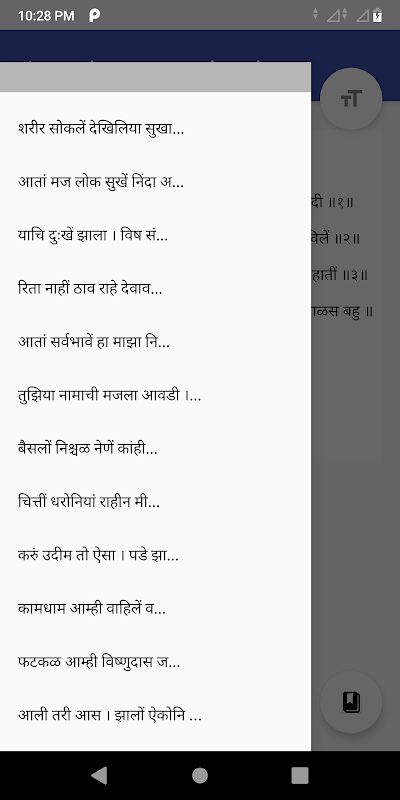 10:28 PM
शरीर सोकलें देखिलिया सुखा...
आतां मज लोक सुखें निंदा अ...
दी ॥१॥
याचि दुःखें झाला । विष सं...
विलें ॥२॥
हातीं ॥३॥
रिता नाहीं ठाव राहे देवाव...
ाळस बहु ॥
आतां सर्वभावें हा माझा नि...
तुझिया नामाची मजला आवडी ।...
बैसलों निश्चळ नेणें कांही...
चित्तीं धरोनियां राहीन मी...
करुं उदीम तो ऐसा । पडे झा...
कामधाम आम्ही वाहिलें व...
फटकळ आम्ही विष्णुदास ज...
आली तरी आस । झालों ऐकोनि ...